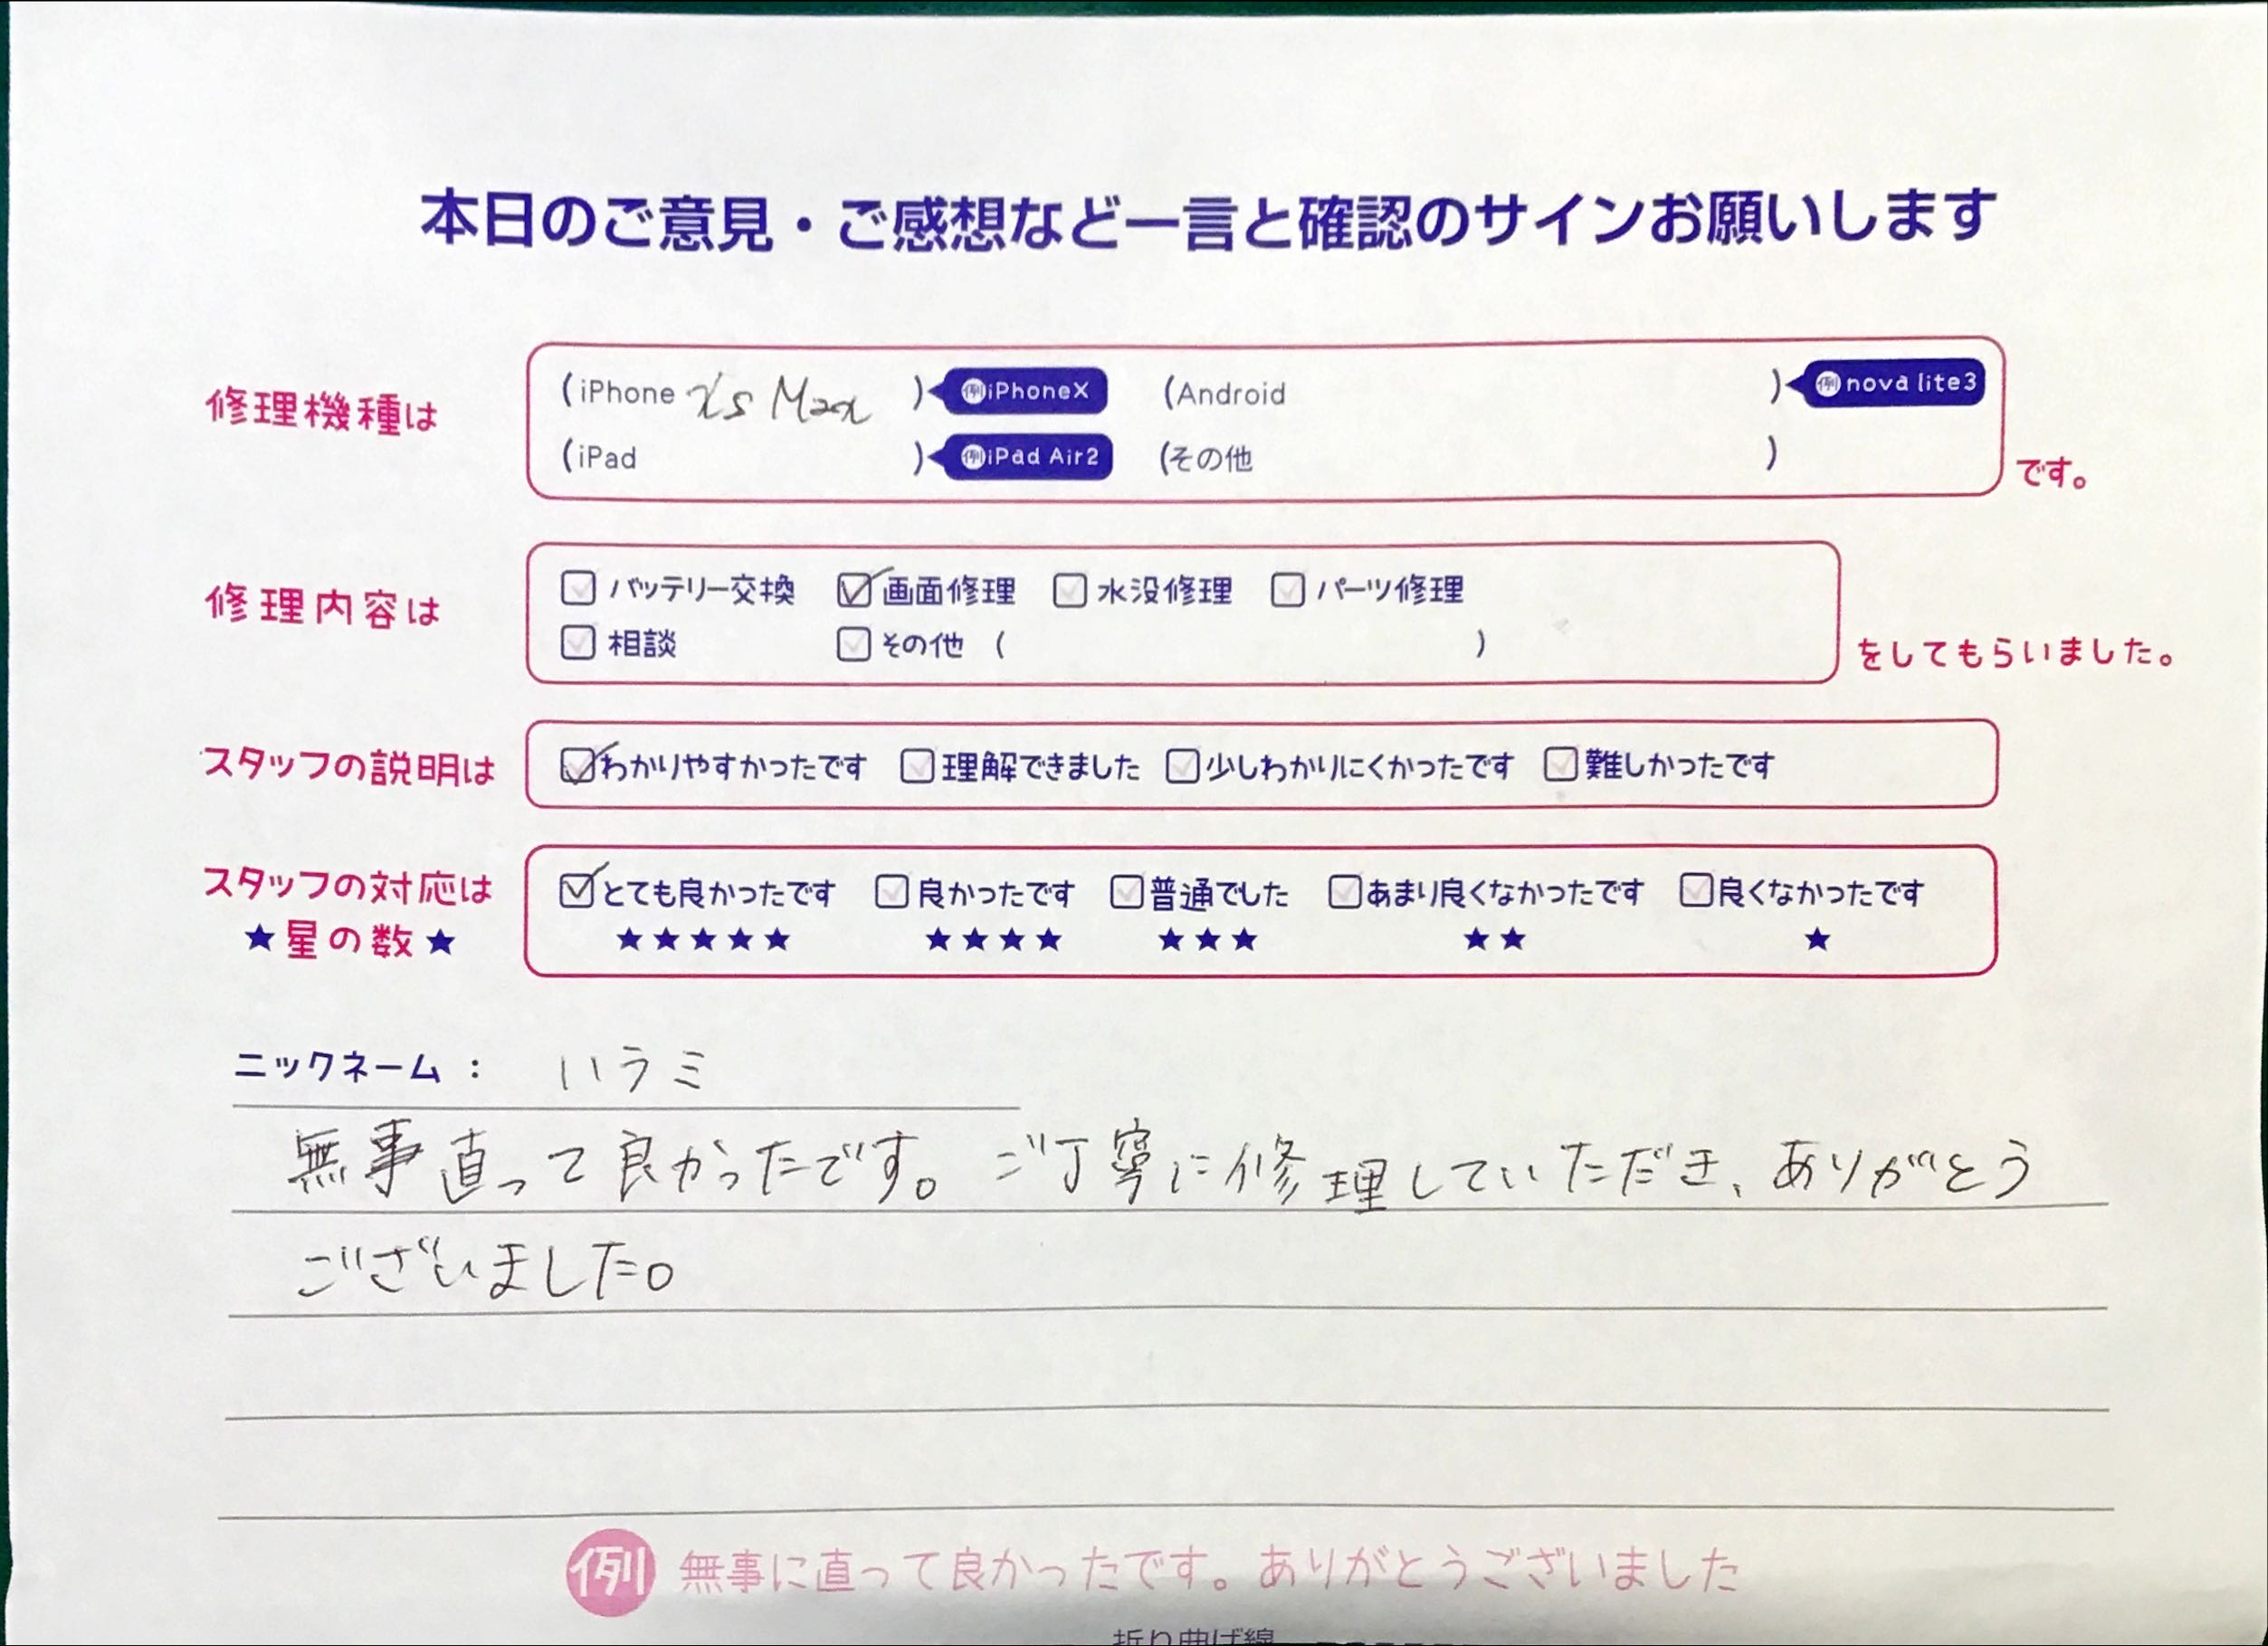 本日のご意見・ご感想など一言と確認のサインお願いします
修理機種は
(iPhone Xs Max ) 例iPhoneX (Android ) 例nova lite3
(iPad ) 例iPad Air2 (その他 ) です。
修理内容は
バッテリー交換 画面修理 水没修理 パーツ修理
相談 その他 ( ) をしてもらいました。
スタッフの説明は わかりやすかったです 理解できました 少しわかりにくかったです 難しかったです
スタッフの対応は とても良かったです 良かったです 普通でした あまり良くなかったです 良くなかったです
★星の数★ ★★★★★ ★★★★ ★★★ ★★ ★
ニックネーム: ハラミ
無事直って良かったです。ご丁寧に修理していただき、ありがとう
ございました。
例 無事に直って良かったです。ありがとうございました
折り曲げ線